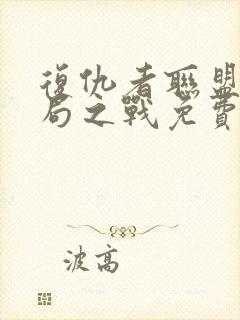 復仇者聯盟
局之戰免費
波高